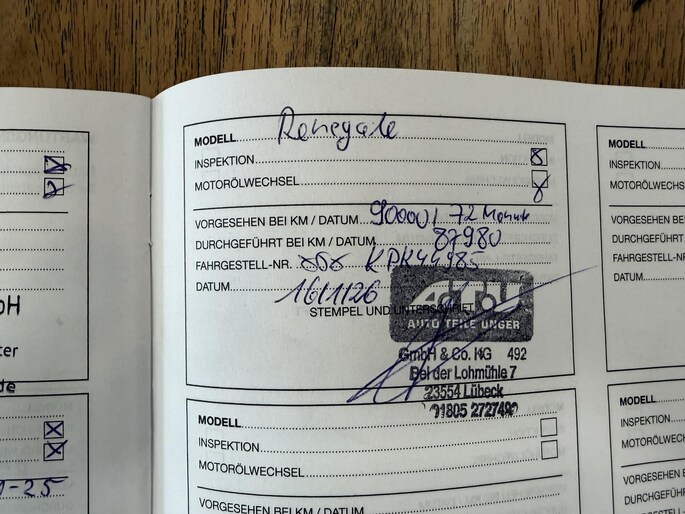 MODELL Renegate
INSPEKTION
MOTORÖLWECHSEL
VORGESEHEN BEI KM / DATUM 90000 / 72 Monate
DURCHGEFÜHRT BEI KM / DATUM 87980
FAHRGESTELL-NR. KPK44985
DATUM 16/1/26
STEMPEL UND UNTERSCHRIFT
A.T.U
AUTO TEILE UNGER
GmbH & Co. KG 492
Bei der Lohmühle 7
23554 Lübeck
01805 272749
MODELL
INSPEKTION
MOTORÖLWECHSEL
VORGESEHEN BEI KM / DATUM
bH
ter
de
-25
MODELL
INSPEKTION
MOTORÖLWECHS
VORGESEHEN B
DURCHGEFÜHRT
FAHRGESTELL-N
DATUM
MODELL
INSPEKTION
MOTORÖLWE
VORGESEHEN